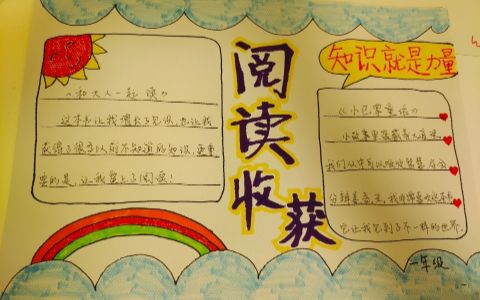 《和大人一起读》
这本书让我增长了见识，也让我
获得了很多以前不知道的知识，更重
要的是，让我爱上了阅读！
阅读收获
知识就是力量
《小巴掌童话》
小故事里蕴藏着大道理
我们从中可以吸收智慧
分辨善恶美，我非常喜欢这本书
它让我见到了不一样的世界。
一年级